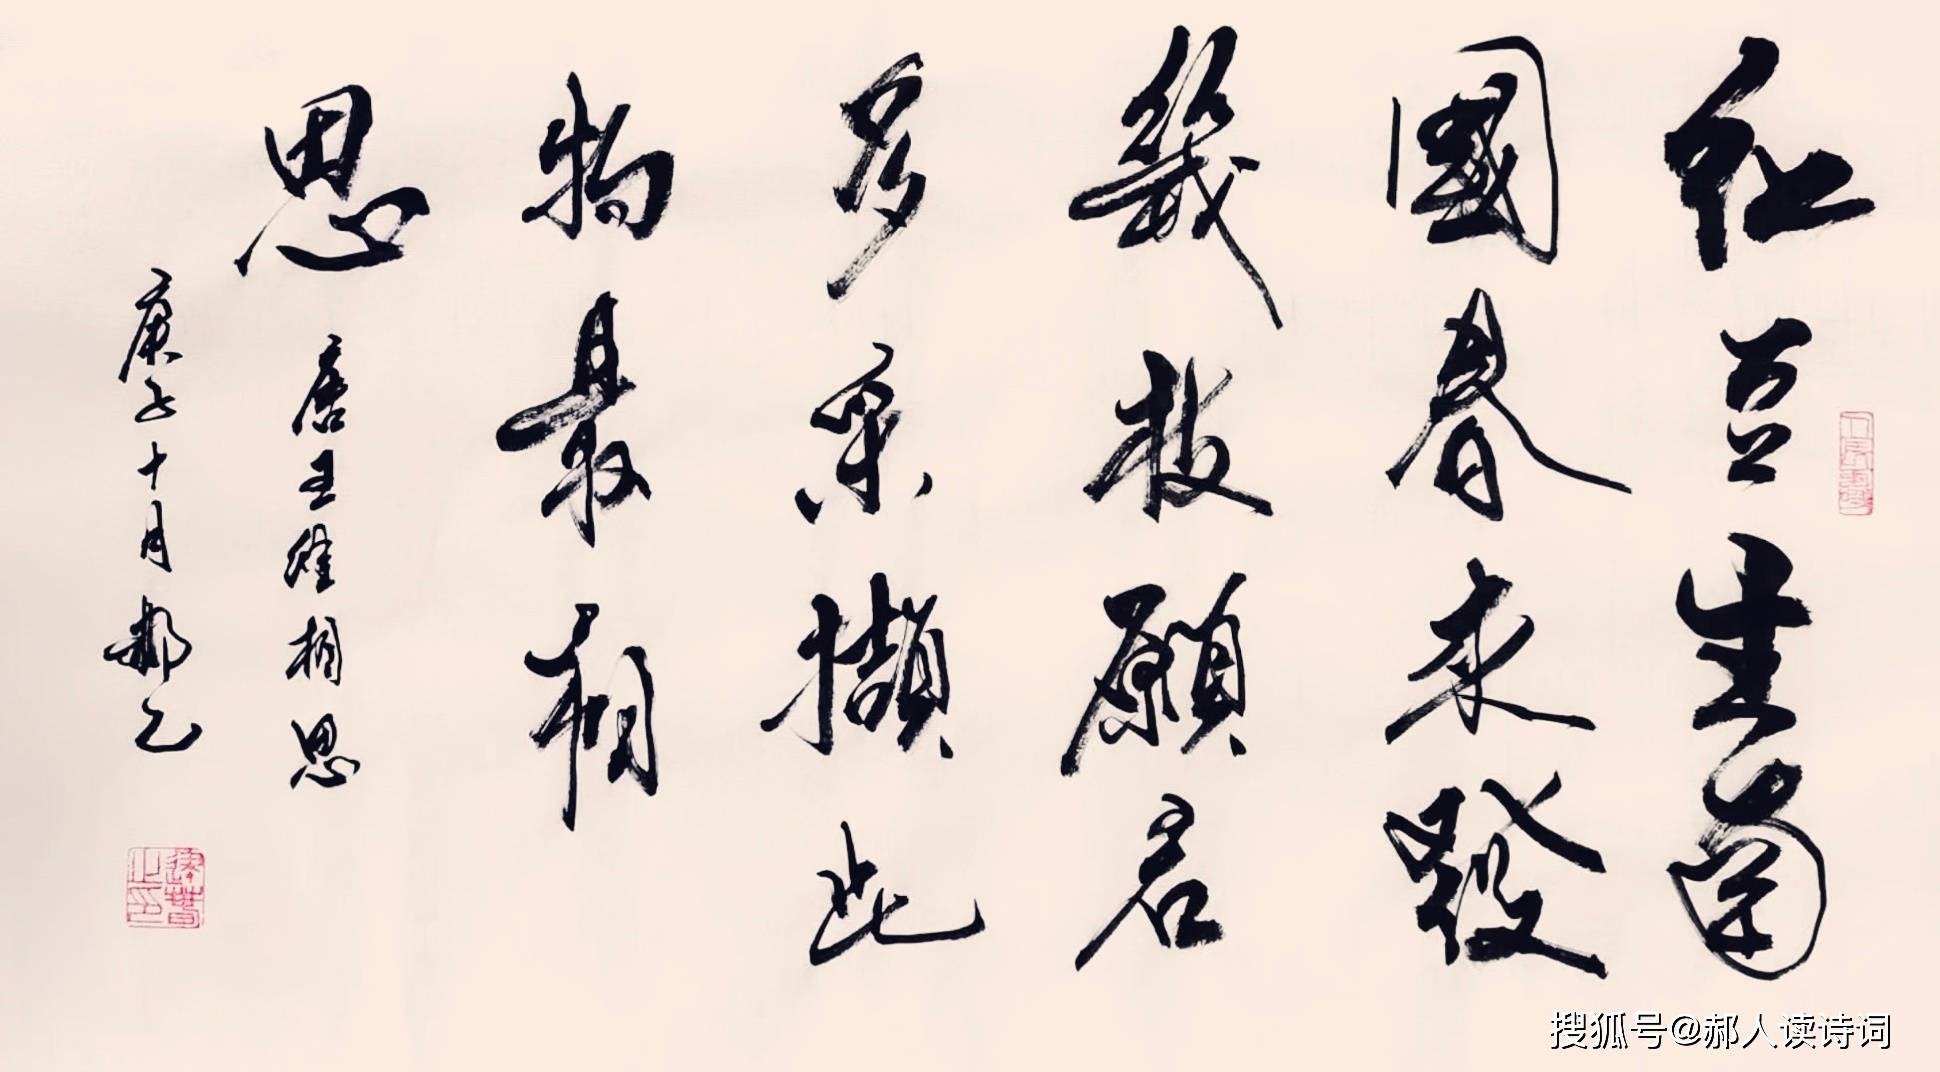 紅豆生南
國春来發
幾枝願君
多采擷此
物最相
思
唐王維相思
庚子十月郝乙
搜狐号@郝人读诗词